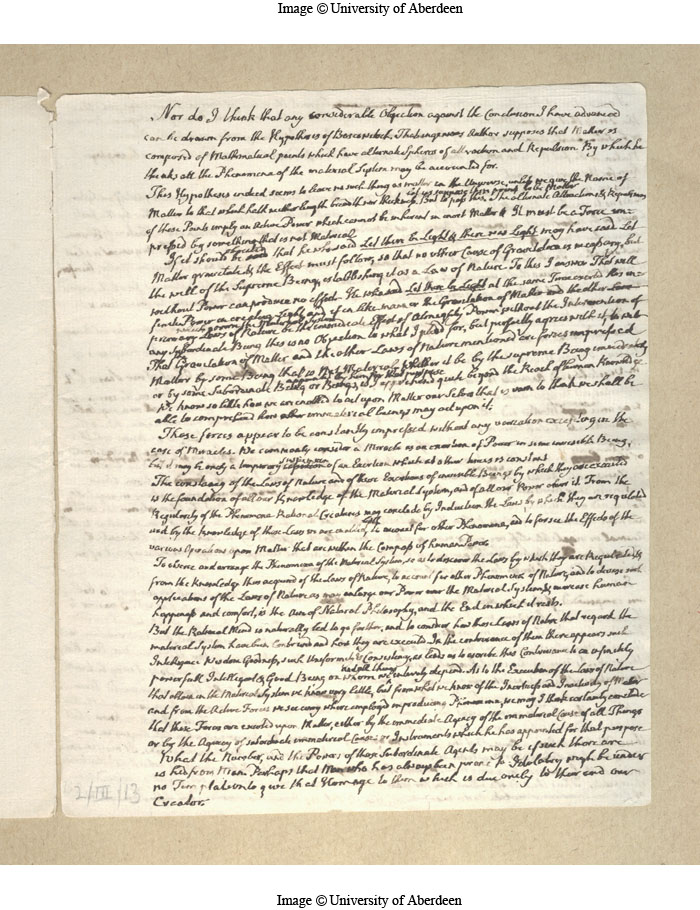 Image © University of Aberdeen
Nor do I think that any considerable Objection against the Conclusion I have advanced
can be drawn from the Hypothesis of Boscovich. That ingenious Author supposes that Matter is
composed of Mathematical points which have alternate Spheres of attraction and Repulsion. By which he
thinks all the Phenomena of the material System may be accounted for.
This Hypothesis indeed seems to leave no such thing as matter in the Universe, unless we give the Name of
Matter to that which hath neither length breadth nor thickness. But to pass this, The alternate Attractions & Repulsions
let us suppose these points to be Matter
of these Points imply an Active Power which cannot be inherent in inert Matter & It must be a Force im-
pressed by something that is not Material
If it should be said that he who said Let there be Light & there was Light, may have said Let
Matter gravitate & the Effect must follow, so that no other Cause of Gravitation is necessary, but
the will of the Supreme Being, establishing it as a Law of Nature. To this I answer That Will
without Power can produce no effect. He who said Let there be Light at the same Time exerted his in-
finite Power in creating Light, and if in like manner the Gravitation of Matter and the other
primary Laws of Nature be the immediate Effect of Almighty Power without the Intervention of
which govern the Material System
any Subordinate Being this is no Objection to what I plead for, but perfectly agrees with it, to wit
That Gravitation of Matter and the other Laws of Nature mentioned are forces impressed
Matter by some Being that is Not Material; Whether it be by the supreme Being immediately
or by some Subordinate Being or Beings, is I apprehend quite beyond the Reach of human Knowledge.
appointed by him for that purpose
We know so little how we are enabled to act upon Matter our selves that it is vain to think we shall be
able to comprehend how other immaterial beings may act upon it.
These forces appear to be constantly impressed without any variation excepting in the
case of Miracles. We commonly consider a Miracle as an exertion of Power in some invisible Being,
but it may be only a temporary of an Exertion which at other times is constant
suspension
The constancy of the Laws of Nature and of those Exertions of invisible Beings by which they are executed
is the foundation of all our Knowledge of the Material System, and of all our Power over it. From the
Regularity of the Phenomena Rational Creatures may conclude by Induction the Laws by which they are regulated
and by the knowledge of those Laws we are enabled to account for other Phenomena, and to forsee the Effects of the
various Operations upon Matter that are within the Compass of human Power.
To observe and arrange the Phenomena of the Material System, so as to discover the Laws by which they are Regulated, &
from the Knowledge thus acquired of the Laws of Nature, to account for other Phenomena of Nature, and to devise such
applications of the Laws of Nature as may enlarge our Power over the Material System, & increase human
happiness and comfort, is the Aim of Natural Philosophy, and the End in which it rests.
But the Rational Mind is naturally led to go further, and to consider how those Laws of Nature that regard the
material System have been Contrived and how they are executed. In the contrivance of them there appears such
Intelligence Wisdom Goodness, such Uniformity & Consistency, as leads us to ascribe this Contrivance to an infinitely
powerfull Intelligent & Good Being on whom we intirely depend. As to the Execution of the Laws of Nature
and all things
that obtain in the Material System we know very little, but from what we know of the Inertness and Inactivity of Matter
and from the Active Forces we see every where employed in producing Phenomena, we may I think certainly conclude
that these Forces are exerted upon Matter, either by the immediate Agency of the immaterial Cause of all Things
or by the Agency of subordinate immaterial Causes or Instruments which he has appointed for that purpose
What the Number, and the Powers of those Subordinate Agents may be if such there are
is hid from Man. Perhaps that Man who has always been prone to Idolatry might be under
no Temptation to give that Homage to them which is due onely to their and our
Creator.
2/III/13
Image © University of Aberdeen